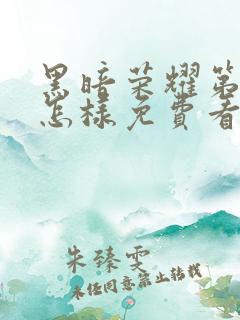 黑暗荣耀第
怎样免费看
朱臻雯
未经同意禁止转载